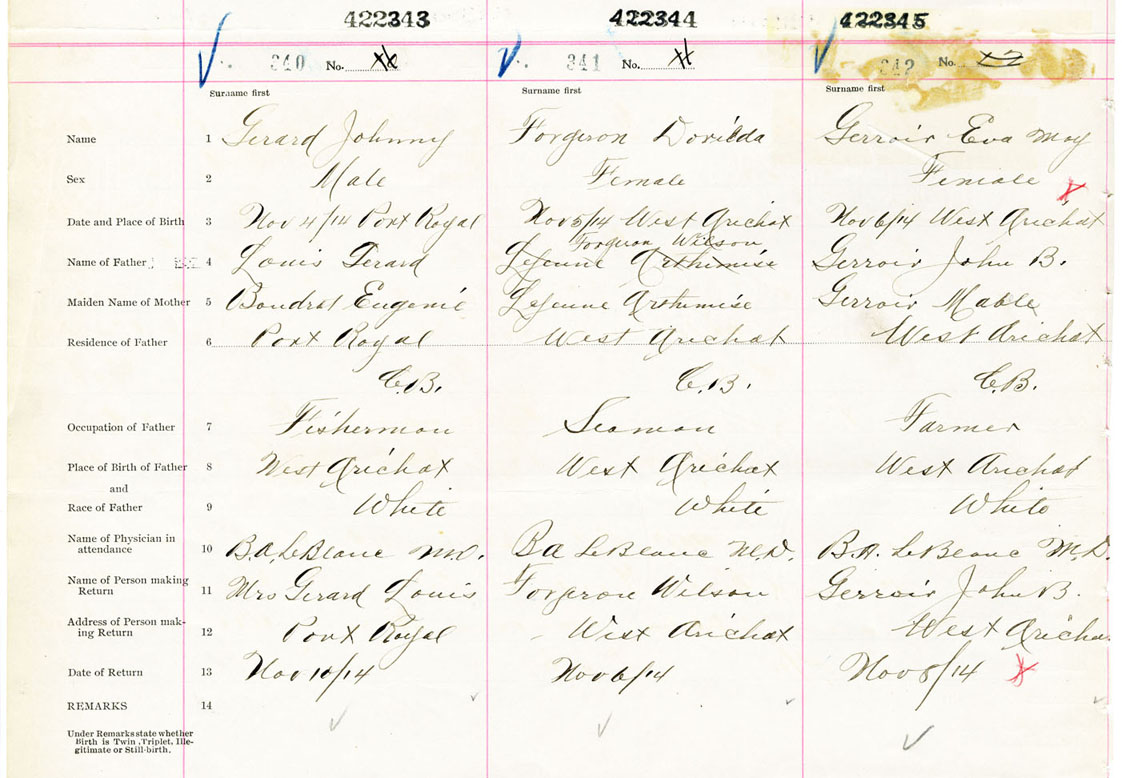 422343 422344 422345
340 No. 341 No. 342 No.
Surname first Surname first Surname first
Name 1 Gerard Johnny Forgeron Dorilda Gerroir Eva May
Sex 2 Male Female Female
Date and Place of Birth 3 Nov 4/14 Port Royal Nov 5/14 West Arichat Nov 6/14 West Arichat
Forgeron Wilson
Name of Father 4 Louis Gerard Lejeune Arthimise Gerroir John B.
Maiden Name of Mother 5 Boudrot Eugenie Lejeune Arthimise Gerroir Mable
Residence of Father 6 Port Royal West Arichat West Arichat
C.B. C.B. C.B.
Occupation of Father 7 Fisherman Seaman Farmer
Place of Birth of Father 8 West Arichat West Arichat West Arichat
and
Race of Father 9 White White White
Name of Physician in
attendance 10 B.A. LeBlanc M.D. B A LeBlanc M.D. B.A. LeBlanc M.D.
Name of Person making
Return 11 Mrs Gerard Louis Forgeron Wilson Gerroir John B.
Address of Person mak-
ing Return 12 Port Royal West Arichat West Aricha
Date of Return 13 Nov 10/14 Nov 6/14 Nov 8/14
REMARKS 14
Under Remarks state whether
Birth is Twin, Triplet, Ille-
gitimate or Still-birth.